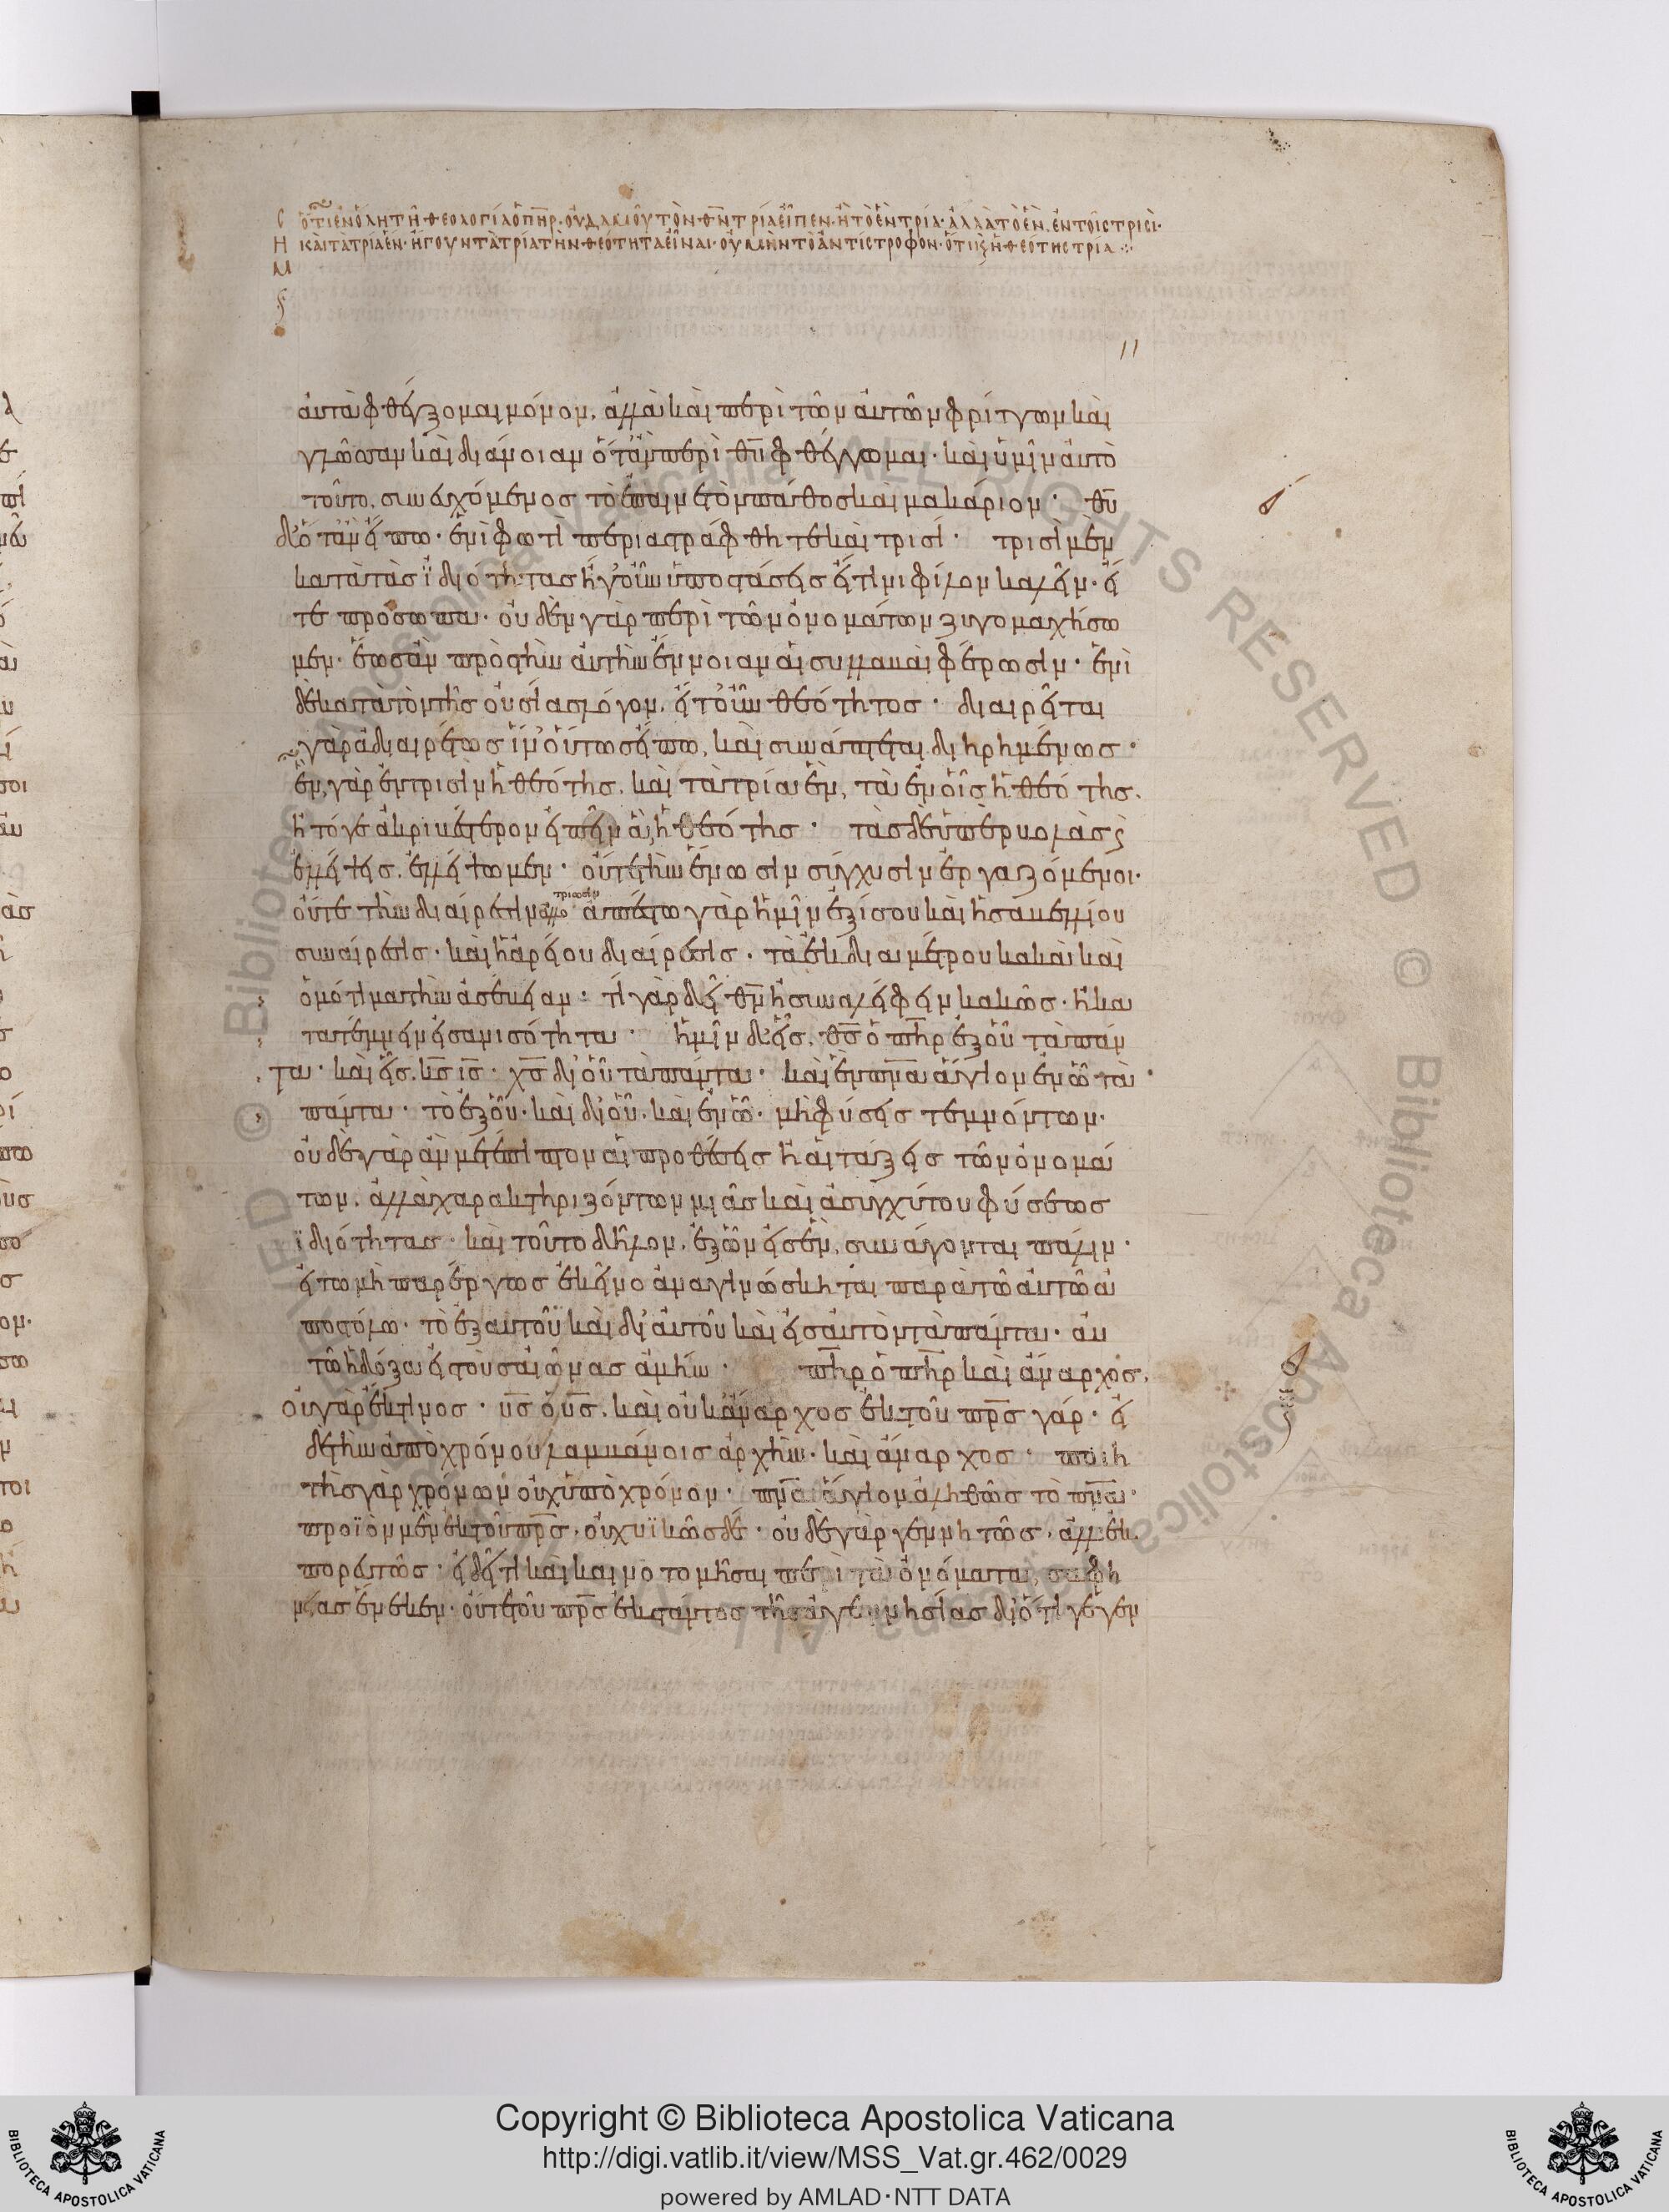 ὅτι ἐν ὅλη τῆ θεολογία ὁ πη̅ρ. οὐδαμοῦ τὸν θν̅ τρία εἶπεν. ἢ τὸ ἓν τρία. ἀλλὰ τὸ ἓν, ἐν τοῖς τρισὶ.
καὶ τὰ τρία ἕν. ἤγουν τὰ τρία τὴν θεότητα εἶναι. οὐ μὴν τὸ ἀντίστροφον. ὅτι ἡ θεότης τρία
αὐτὰ φθέγξομαι μόνον, ἀλλὰ καὶ περὶ τῶν αὐτῶν φρίττων καὶ
γλῶσσαν καὶ διάνοιαν ὅτ' ἂν περὶ θυ̅ φθέγγωμαι· καὶ ὑμῖν αὐτὸ
τοῦτο, συνευχόμενος τὸ ἐπαινετὸν πάθος καὶ μακάριον· θυ̅
δ' ὅτ' ἂν εἴπω· ἑνὶ φωτὶ περιαστράφθητε καὶ τρισί· τρισὶ μὲν
κατὰ τὰς ἰδιότητας ἤγ' οὖν ὑποστάσεις εἴ τινι φίλον καλεῖν· εἴ
τε πρόσωπα· οὐδὲν γὰρ περὶ τῶν ὀνομάτων ζυγομαχήσω
μεν· ἕως ἂν πρὸς τὴν αὐτὴν ἔννοιαν αἱ συλλαβαὶ φέρωσιν· ἑνὶ
δὲ κατὰ τὸν τῆς οὐσίας λόγον, εἴτ' οὖν θεότητος· διαιρεῖται
γὰρ ἀδιαιρέτως ἵν' οὕτως εἴπω, καὶ συνάπτεται διηρημένως·
ἓν, γὰρ ἐν τρισὶν ἡ θεότης. καὶ τὰ τρία ἓν, τὰ ἐν οἷς ἡ θεότης.
ἢ τό γε ἀκριβέστερον εἰπεῖν ἃ, ἡ θεότης· τὰς δὲ ὑπερβολὰς ϗ
ἐλλείψεις, ἐλλείπωμεν· οὔτε τὴν ἕνωσιν σύγχυσιν ἐργαζόμενοι·
οὔτε τὴν διαίρεσιν ἀλλο ἀπέστω γὰρ ἡμῖν ἐξ ἴσου καὶ ἡ σαβελλίου
συναίρεσις· καὶ ἡ ἀρείου διαίρεσις· τὰ ἐκ διαμέτρου κακὰ καὶ
ὁμότιμα τὴν ἀσέβειαν· τί γὰρ δεῖ θν̅ ἢ συναλείφειν κακῶς· ἢ κα
τατέμνειν εἰς ἀνισότητα· ἡμῖν δ' εἷς, θς̅ ὁ πη̅ρ ἐξ οὗ τὰ πάν
τα· καὶ εἷς, κς̅ ις̅ χς̅ δι' οὗ τὰ πάντα· καὶ ἓν πν̅α ἅγιον ἐν ὧ τὰ
πάντα· τὸ ἐξ οὗ· καὶ δι' οὗ, καὶ ἐν ὧ· μὴ φύσεις τεμνόντων·
οὐδὲ γὰρ ἂν μετέπιπτον αἱ προθέσεις ἢ αἱ τάξεις τῶν ὀνομά
των, ἀλλὰ χαρακτηριζόντων μιᾶς καὶ ἀσυγχύτου φύσεως
ἰδιότητας· καὶ τοῦτο δῆλον, ἐξ ὧν εἰς ἓν, συνάγονται πάλιν·
εἴ τω μὴ παρέργως ἐκεῖνο ἀναγινώσκηται παρὰ τῶ αὐτῶ ἀ
ποστόλω· τὸ ἐξ αὐτοῦ καὶ δι' αὐτοῦ καὶ εἰς αὐτὸν τὰ πάντα· αὐ
τῶ ἡ δόξα εἰς τοὺς αἰῶνας ἀμήν· πη̅ρ ὁ πη̅ρ καὶ ἄναρχος,
οὐ γὰρ ἔκ τινος· υς̅ ὁ υς̅, καὶ οὐκ ἄναρχος ἐκ τοῦ πρς̅ γάρ· εἰ
δὲ τὴν ἀπὸ χρόνου λαμβάνοις ἀρχὴν· καὶ ἄναρχος· ποιη
τὴς γὰρ χρόνων οὐχ ὑπὸ χρόνον· πν̅α ἅγιον ἀληθῶς τὸ πν̅α·
προϊὸν μὲν ἐκ τοῦ πρς̅, οὐχ υἱκῶς δὲ· οὐδὲ γὰρ γεννητῶς, ἀλλ' ἐκ
πορευτῶς· εἰ δεῖ τι καὶ καινοτομῆσαι περὶ τὰ ὀνόματα, σαφη
νείας ἕνεκεν· οὔτε τοῦ πρς̅ ἐκστάντος τῆς ἀγεννησίας διότι γεγέν